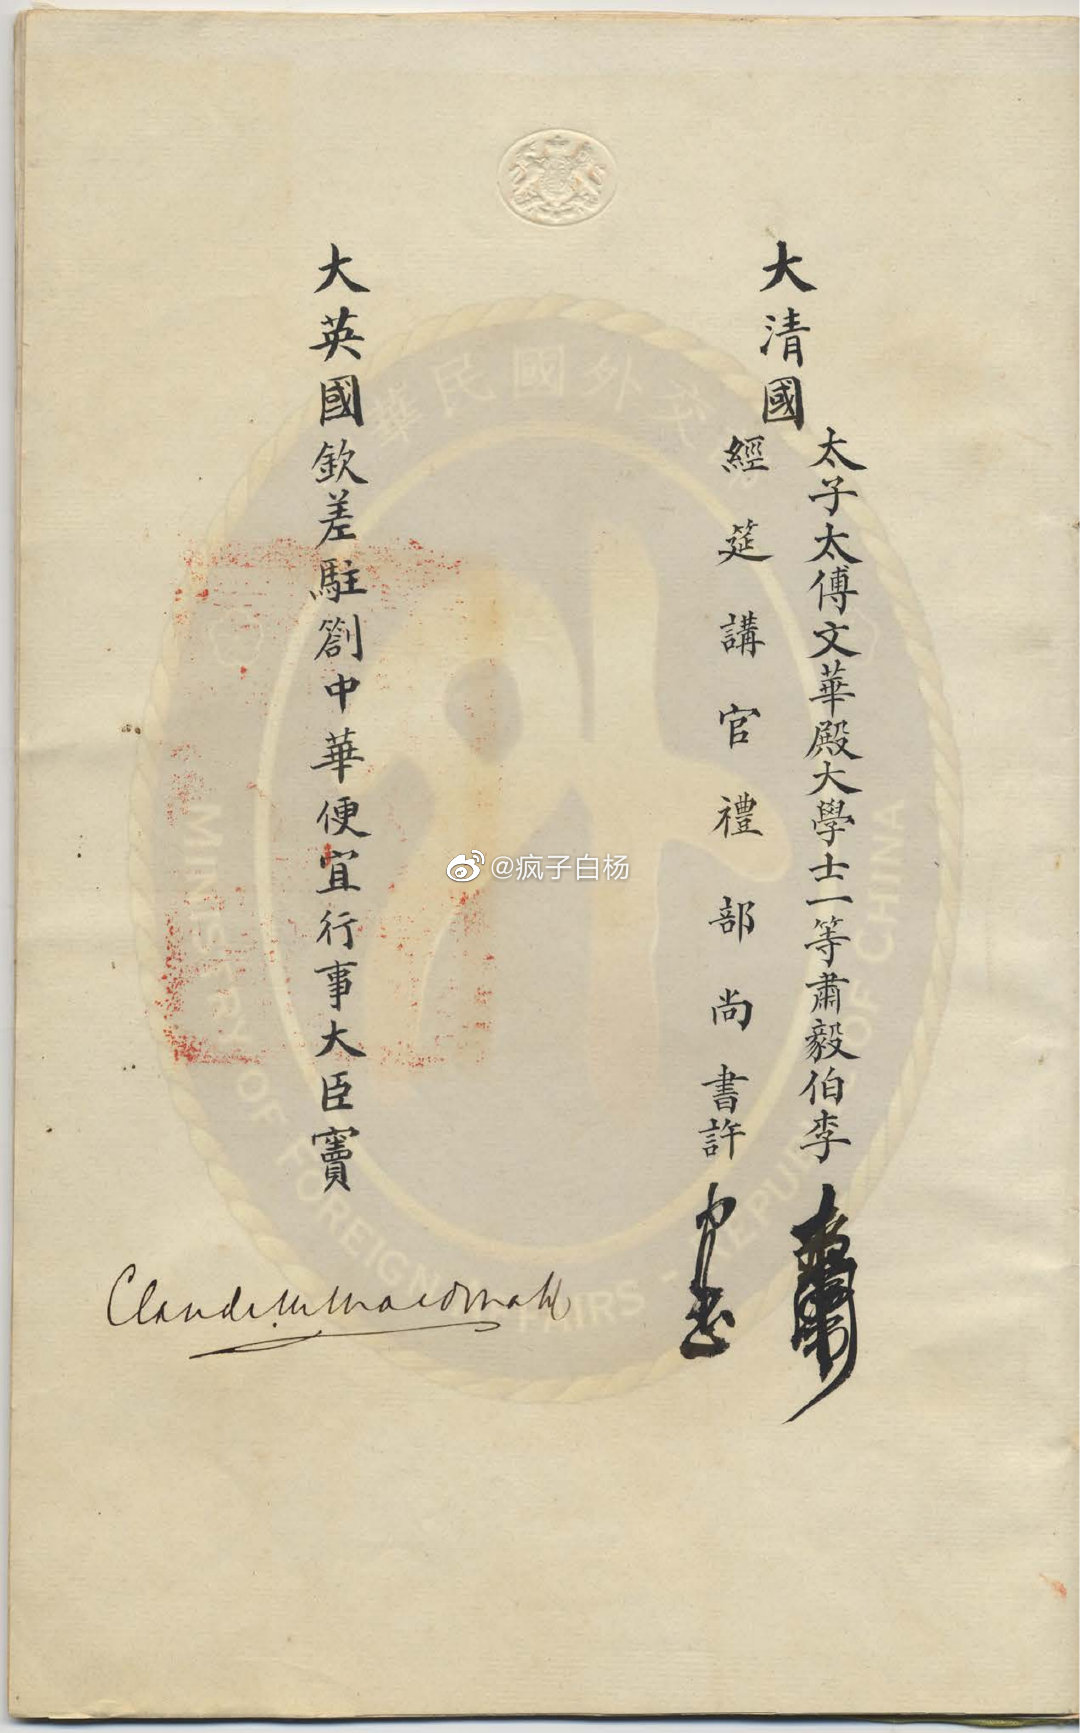 大清國
太子太傅文華殿大學士一等肅毅伯李
經筵講官禮部尚書許
大英國欽差駐劄中華便宜行事大臣竇
Claude M. MacDonald
華民國外交
MINISTRY OF FOREIGN AFFAIRS - REPUBLIC OF CHINA
@疯子白杨